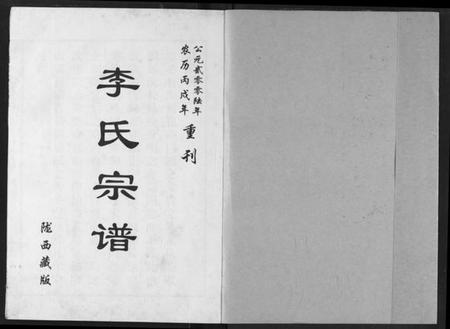 公元贰零零陆年
农历丙戌年
重刊
李氏宗谱
陇西藏版